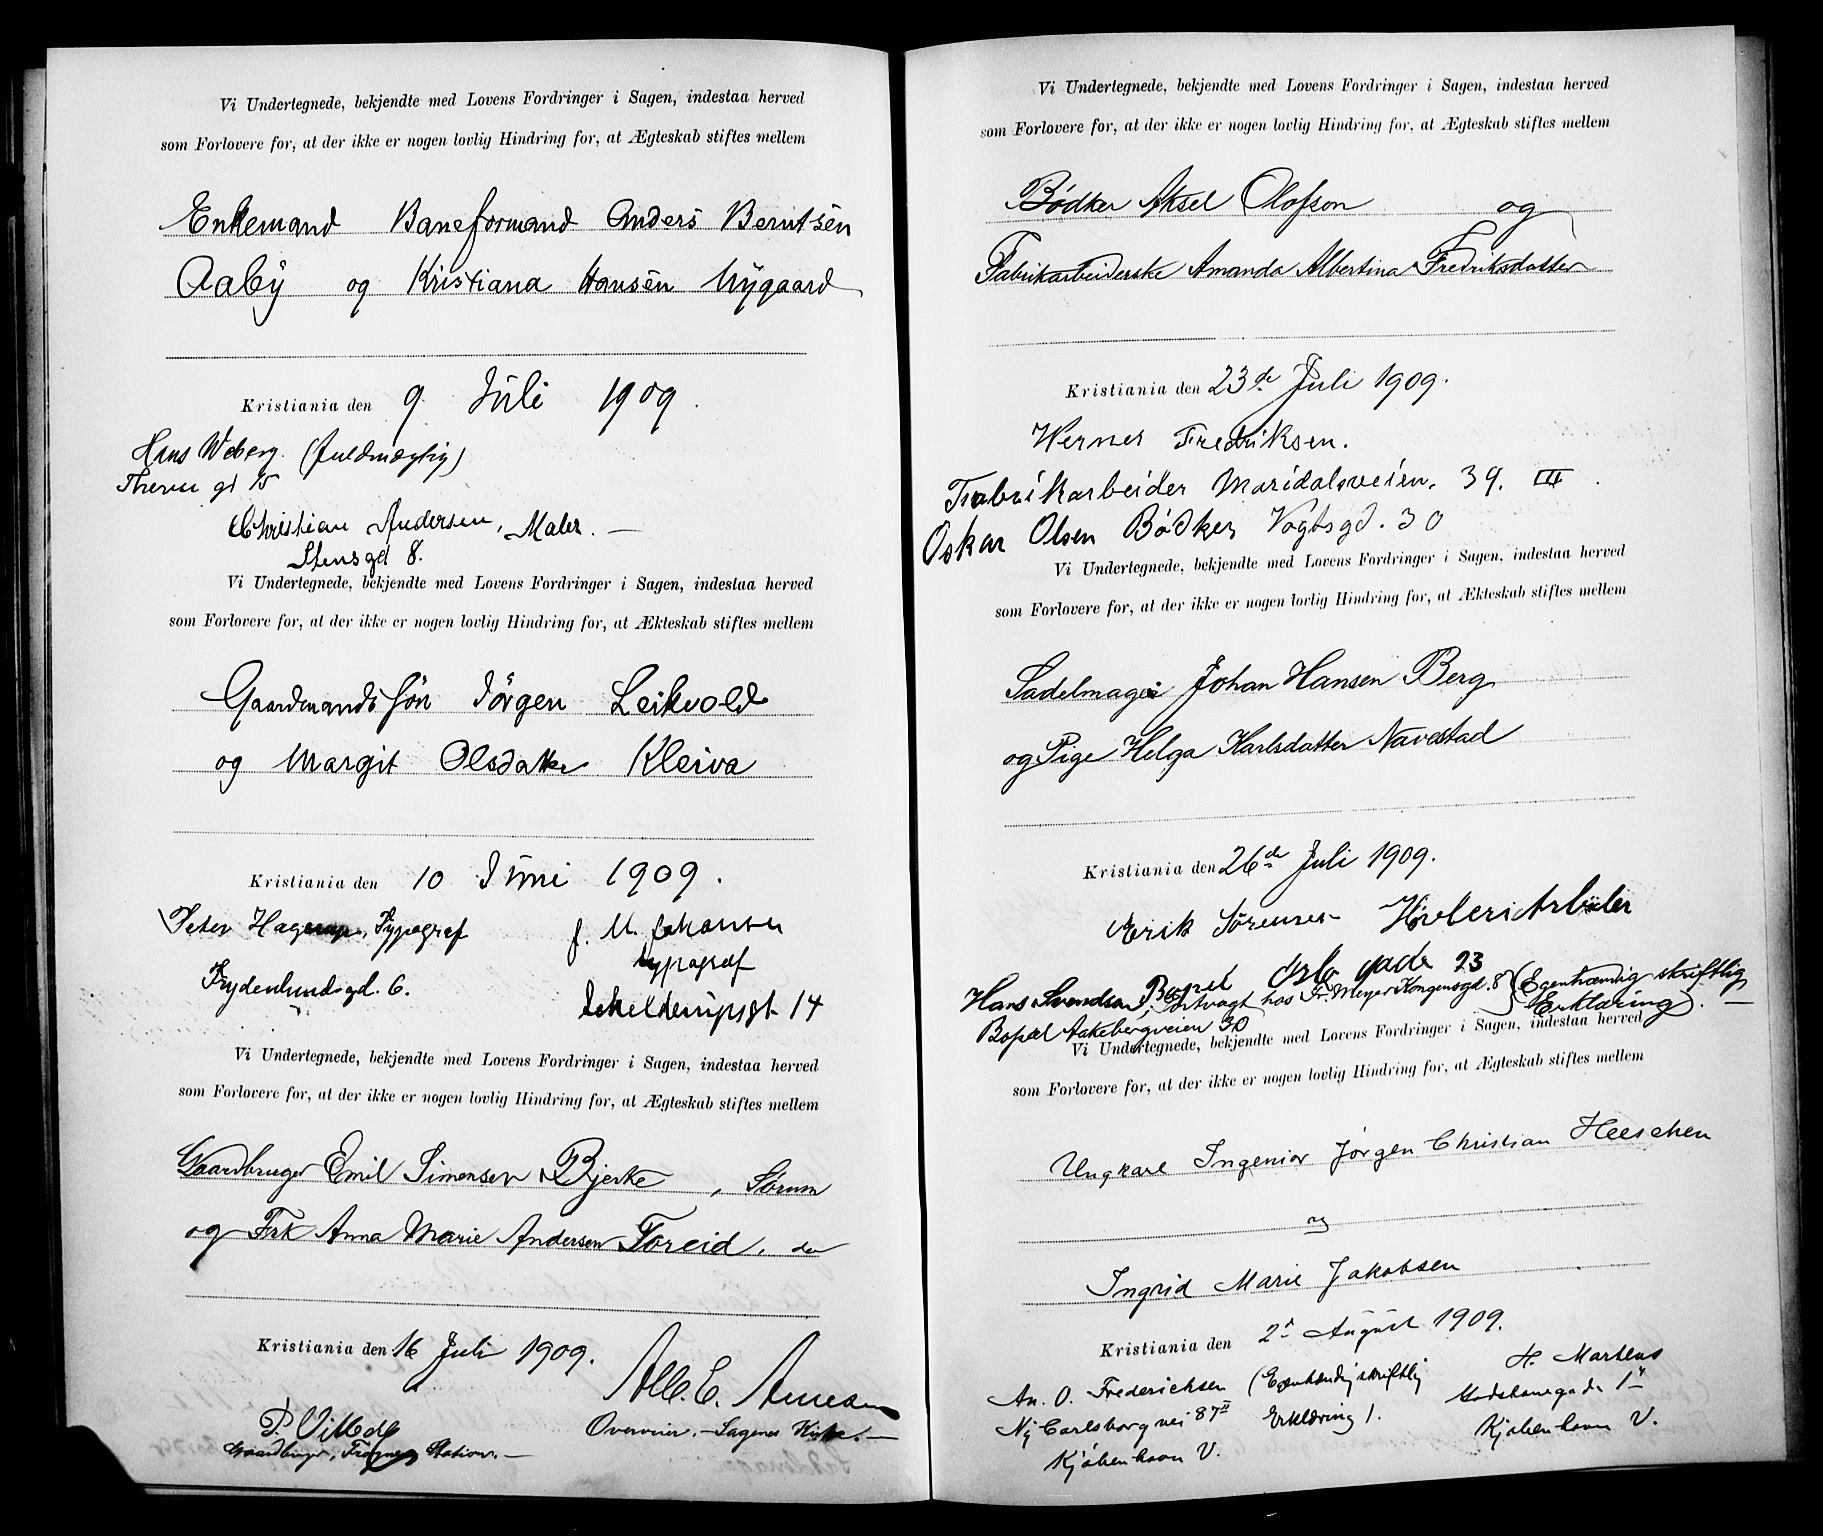 Vi Undertegnede, bekjendte med Lovens Fordringer i Sagen, indestaa herved
som Forlovere for, at der ikke er nogen lovlig Hindring for, at Ægteskab stiftes mellem
Enkemand Baneformand Anders Berntsen
Aaby og Kristiana Hansen Nygaard
Kristiania den 9. Juli 1909.
Hans Weberg. (fuldmægtig)
gd 15
Christian Andersen, Maler. —
Stensgd 8.
Vi Undertegnede, bekjendte med Lovens Fordringer i Sagen, indestaa herved
som Forlovere for, at der ikke er nogen lovlig Hindring for, at Ækteskab stiftes mellem
Gaardmandssøn Jörgen Leikvold
og Margit Olsdatter Kleiva
Kristiania den 10 Juni 1909.
Peter Hagerup, Typograf
Frydenlundsgd. 6.
J. M. Johansen
typograf
Schelderupsgt 14
Vi Undertegnede, bekjendte med Lovens Fordringer i Sagen, indestaa herved
som Forlovere for, at der ikke er nogen lovlig Hindring for, at Ægteskab stiftes mellem
Gaardbruger Emil Simensen Bjerke, Sørum
og Frk Anna Marie Andersen Toreid,
Kristiania den 16 Juli 1909.
Alb. E. Arnesen
Overvier. — Sagenes Kirke. —
P. Vilberg
Gaardbruger, Frogner Station. —
Vi Undertegnede, bekjendte med Lovens Fordringer i Sagen, indestaa herved
som Forlovere for, at der ikke er nogen lovlig Hindring for, at Ægteskab stiftes mellem
Bødker Aksel Olofson og
Fabrikarbeiderske Amanda Albertina Fredriksdatter
Kristiania den 23de Juli 1909.
Werner Fredriksen.
Fabrikarbeider Maridalsveien. 39. III.
Oskar Olsen Bödker Vogtsgd. 30
Vi Undertegnede, bekjendte med Lovens Fordringer i Sagen, indestaa herved
som Forlovere for, at der ikke er nogen lovlig Hindring for, at Ækteskab stiftes mellem
Sadelmager Johan Hansen Berg
og Pige Helga Karlsdatter Navestad
Kristiania den 26de Juli 1909.
Erik Sørensen Høvleriarbeider
Bopel Oslo gade 23
Hans Svendsen, Portvagt hos Fr. Meyer Kongensgd. 8 (Egenhændig skriftlig
Erklæring). —
Bopæl Aakebergveien 30
Vi Undertegnede, bekjendte med Lovens Fordringer i Sagen, indestaa herved
som Forlovere for, at der ikke er nogen lovlig Hindring for, at Ægteskab stiftes mellem
Ungkarl Ingeniør Jørgen Christian Heeschen
og
Ingrid Marie Jakobsen
Kristiania den 2n August 1909.
An. O. Frederichsen (Egenhændig skriftlig
Ny Carlsbergvei 87 II Erklæring).
Kjøbenhavn V.
H. Martens
1
Kjøbenhavn V.